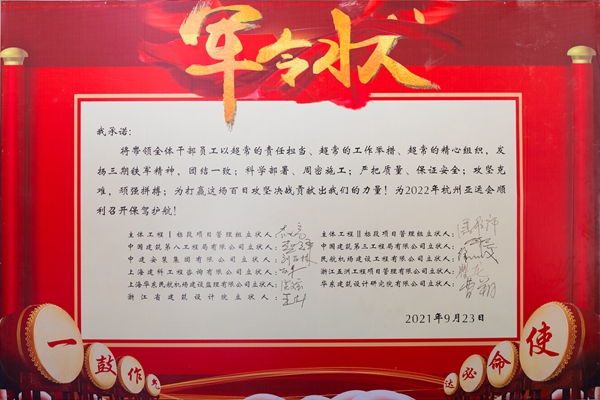 军令状
我承诺：
将带领全体干部员工以超常的责任担当、超常的工作举措、超常的精心组织，发
扬三期铁军精神，团结一致；科学部署、周密施工；严把质量、保证安全；攻坚克
难，顽强拼搏；为打赢这场百日攻坚决战贡献出我们的力量！为2022年杭州亚运会顺
利召开保驾护航！
主体工程Ⅰ标段项目管理组立状人：
中国建筑第八工程局有限公司立状人：
中建安装集团有限公司立状人：
上海建科工程咨询有限公司立状人：
上海华东民航机场建设监理有限公司立状人：
浙江省建筑设计院立状人：
主体工程Ⅱ标段项目管理组立状人：
中国建筑第三工程局有限公司立状人：
民航机场建设工程有限公司立状人：
浙江五洲工程项目管理有限公司立状人：
华东建筑设计研究院有限公司立状人：
2021年9月23日
一鼓作气
使命必达